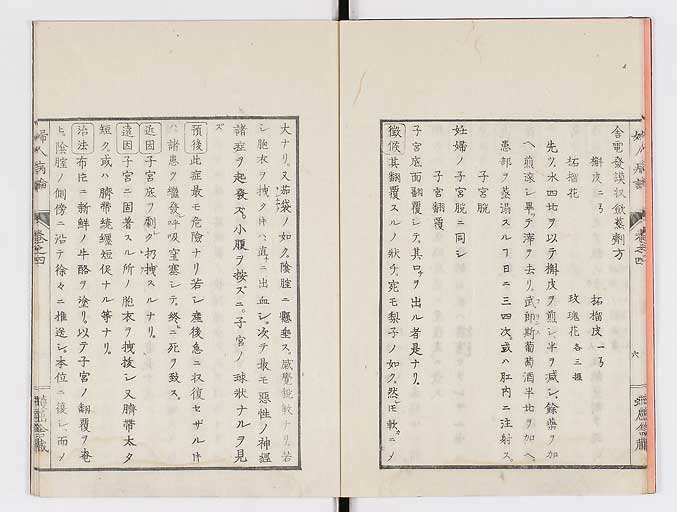 舎電発謨扠歛蒸劑方
槲皮二ゐ　柘榴皮一ゐ
柘榴花　玫瑰花各三握
先ヅ水四比ヲ以テ槲皮ヲ煎シ半ヲ減シ餘藥ヲ加
ヘ煎滾シ畢テ滓ヲ去リ武郎斯葡萄酒半比ヲ加ヘ
患部ヲ蒸溻スルヿ日ニ三四次或ハ肛内ニ注射ス
子宮脱
妊婦ノ子宮脱ニ同シ
子宮翻覆
子宮底面翻覆シテ其口ヲ出ル者是ナリ
徴候其翻覆スルノ狀チ宛モ梨子ノ如ク然𪜈軟ニノ
大ナリ又茄袋ノ如ク陰腟ニ懸垂ス感覺鋭敏ナリ若
シ胞衣ヲ拽ク𪜈ハ直ニ出血シ次テ最モ惡性ノ神經
諸症ヲ起發ス小腹ヲ按ズニ子宮ノ球狀ナルヲ見
ズ
預後此症最モ危險ナリ若シ產後急ニ収復セザル𪜈
ハ諸患ヲ繼發呼吸窒塞シテ終ニ死ヲ致ス
近因子宮底ヲ劇ク扨拽スルナリ
遠因子宮ニ固着スル所ノ胞衣ヲ拽拔シ又臍帶太タ
短ク或ハ臍帶繞纒短促ナル等ナリ
治法布片ニ新鮮ノ牛酪ヲ塗リ以テ子宮ノ翻覆ヲ奄
ヒ陰腟ノ側傍ニ沿テ徐々ニ推送シ本位ニ復シ而ノ
婦人病論
卷之四
六